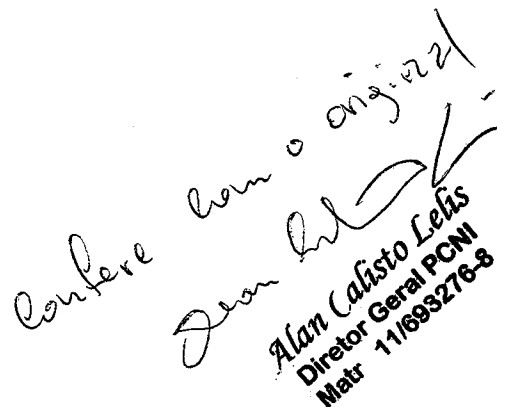 Confere com o original
Alan Calisto Lelis
Diretor Geral PCNI
Matr 11/693276-8